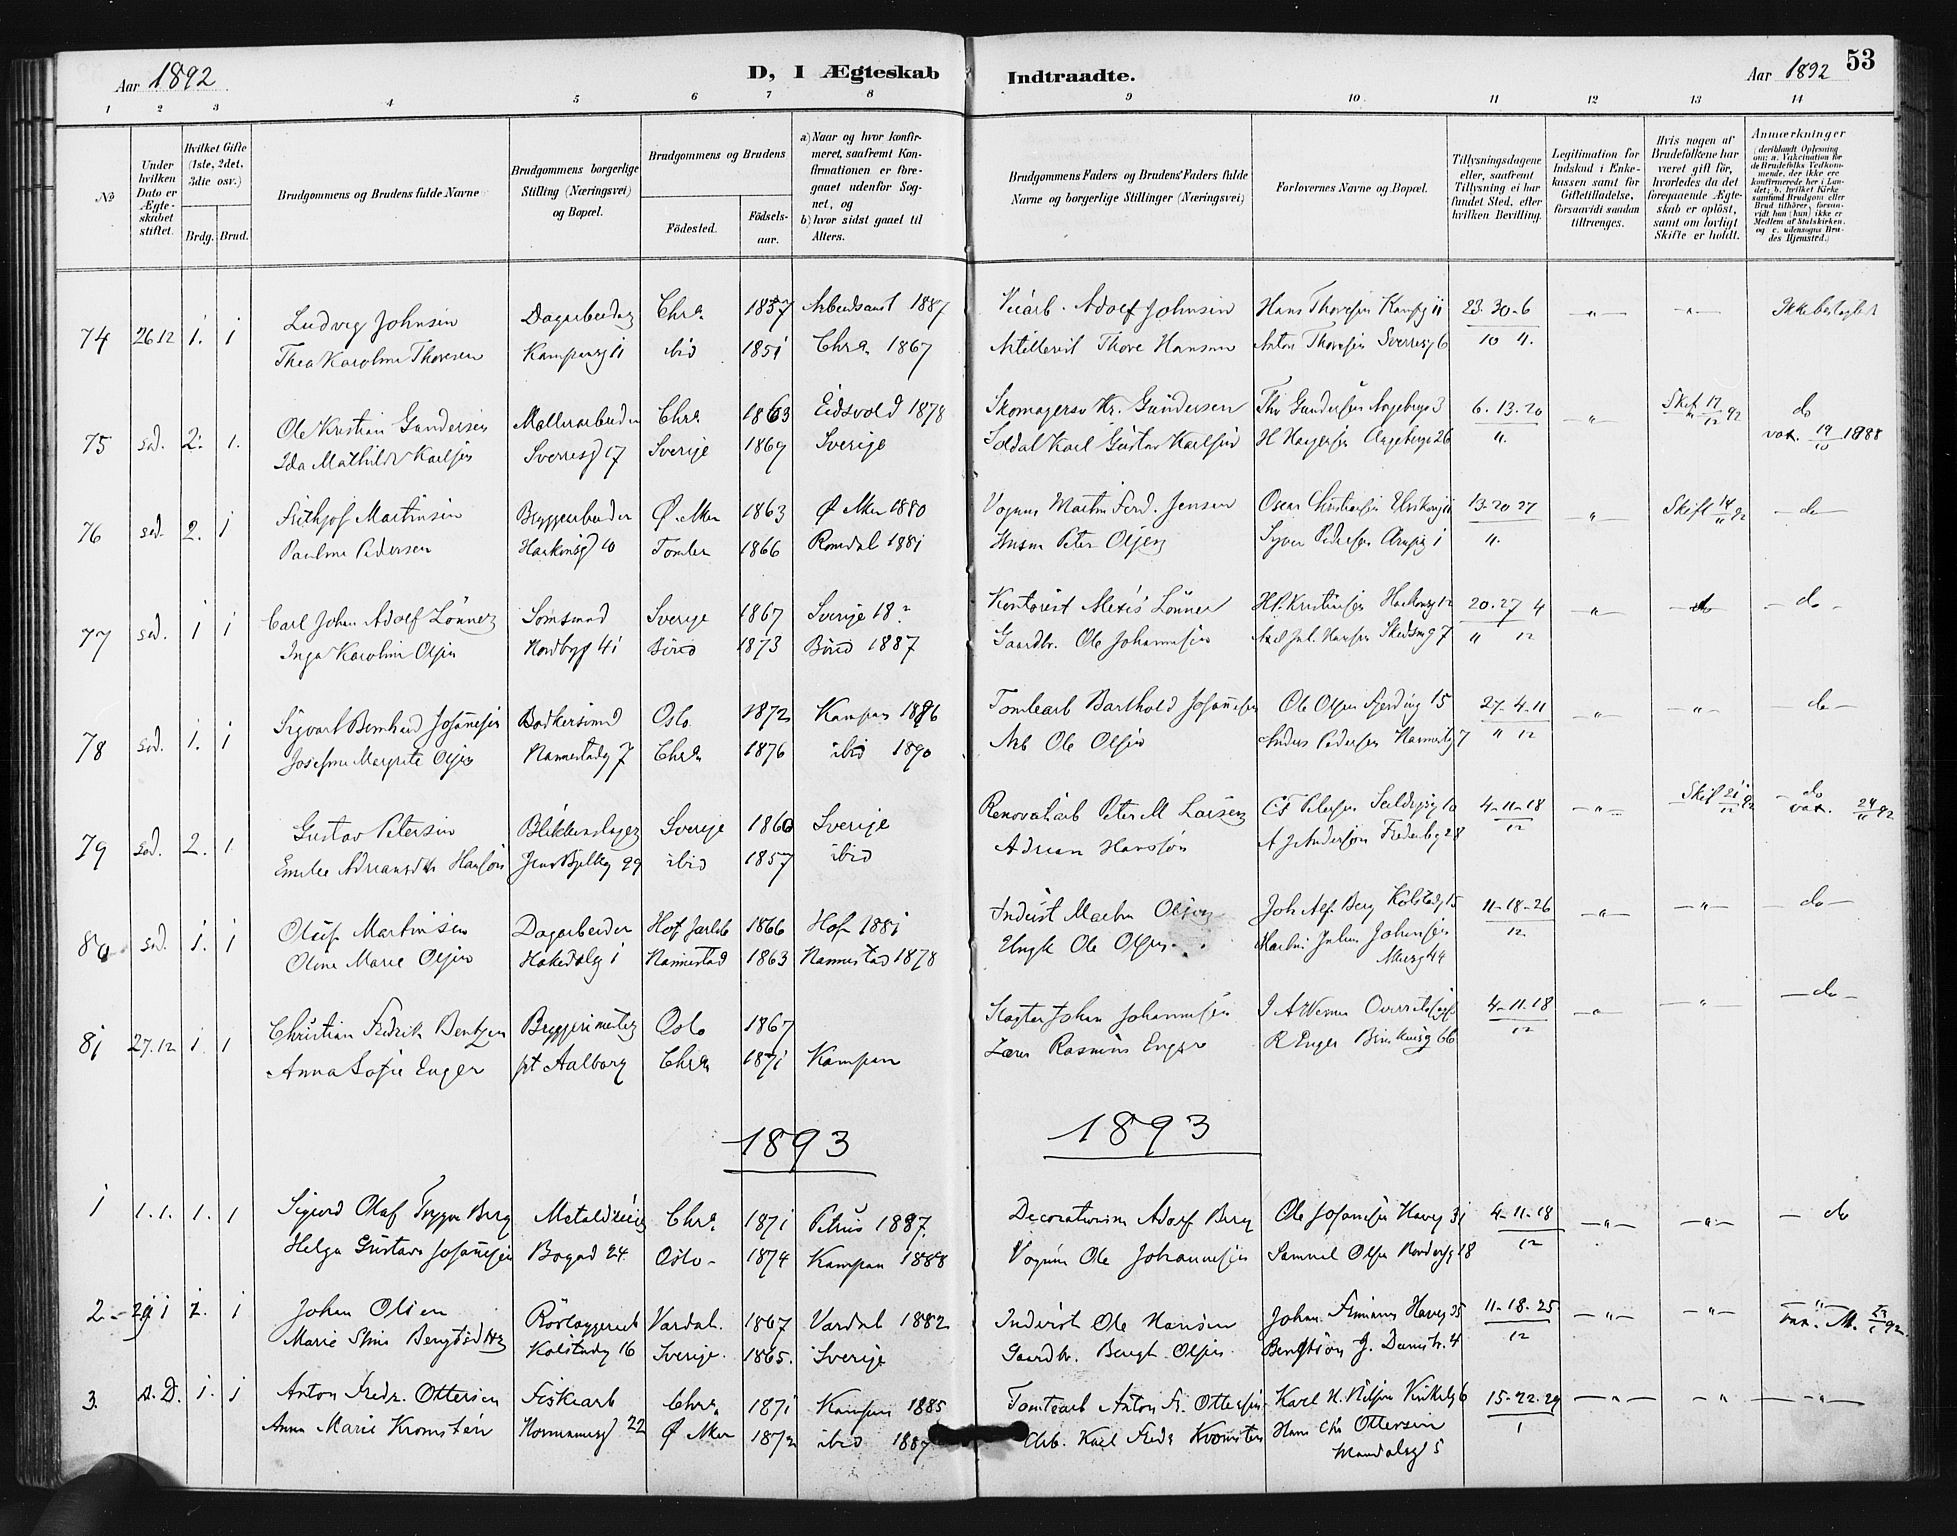 Aar 1892
D, I Ægteskab Indtraadte.
Aar 1892 53
1 2 3 4 5 6 7 8 9 10 11 12 13 14
No
Under hvilken Dato er Ægteskabet stiftet.
Hvilket Gifte (1ste, 2det, 3die osv.)
Brdg. Brud.
Brudgommens og Brudens fulde Navne
Brudgommens borgerlige Stilling (Næringsvei) og Bopæl.
Brudgommens og Brudens
Fødested.
Fødselsaar.
a) Naar og hvor konfirmeret, saafremt Konfirmationen er foregaaet udenfor Sognet, og
b) hvor sidst gaaet til Alters.
Brudgommens Faders og Brudens Faders fulde Navne og borgerlige Stillinger (Næringsvei)
Forlovernes Navne og Bopæl.
Tillysningsdagene eller, saafremt Tillysning ei har fundet Sted, efter hvilken Bevilling.
Legitimation for Indskud i Enkekassen samt for Giftetilladelse, forsaavidt saadan tiltrænges.
Hvis nogen af Brudefolkene har været gift før, hvorledes da det foregaaende Ægteskab er opløst, samt om lovligt Skifte er holdt.
Anmærkninger (deriblandt Oplysning om: a. Vakcination for de Brudefolks Vedkommende, der ikke ere konfirmerede her i Landet; b. hvilket Kirkesamfund Brudgom eller Brud tilhører, forsaavidt han (hun) ikke er Medlem af Statskirken, og c. udensogns Brudes Hjemsted.)
74 26 12 1. 1 Ludvig Johnsen Dagarbeider Chra. 1857 1887 Adolf Johnsen Hans Thoresen Kampg 11 23-30-6 -"- -"-
Thea Karoline Thoresen Kampeng 11 ibid 1851 Chra 1867 Artillerist Thore Hansen Anton Thoresen Sverresg 6 10 11.
75 sad. 2. 1. Ole Kristian Gundersen Malerarbeider Chra. 1863 Eidsvold 1878 Skomagersv Kr. Gundersen Thv Gundersen 3 6-13-20 -"- Skift 17/12 92 do
Ida Mathilde Karlsen Sverresg 17 Sverige 1869 Sverige Soldat Karl Gustav Karlsen 26 11. vac. 19/10 1888
76 sad. 2. 1 Frithjof Martinsen Bryggearbeider Ø. Aker 1863 Ø Aker 1880 Vognm Martin Ferd. Jensen Oscar Christiansen 13-20 27 -"- Skift 14/11 92 -do-
Pauline Pedersen Haakonsg 10 Tomter 1866 Romdal 1881 Husm Peter Olsen Syver Pedersen 11.
77 sad. 1 1 Carl Johan Adolf Lönner Sömsmed Sverige 1867 Sverige 18? Kontorist Alexis Lönner H.P. Kristiansen Haakonsg 12 20-27 4 -"- -do- -do-
Inga Karoline Olsen Nordbyg 41 1873 1887 Gaardbr. Ole Johannesen Axel Jul. Hansen 7 11 12
78 sad. 1. 1 Sigvart Bernhard Johannesen Bødkersvend Oslo 1872 Kampen 1886 Tomtearb Barthold Johannesen Ole Olsen Fjerding 15 27-4-11 -"- -"- do-
Josefine Margrete Olsen Nannestadg 7 Chra 1876 ibid 1890 Arb Ole Olsen Anders Pedersen Nannestg 7 11 12
79 sad. 2. 1 Gustav Petersen Blikkenslager Sverige 1860 Sverige Renovatarb Peter M Larsen C F Petersen 10 4-11-18 -"- Skift 21/12 92 -do-
Emilie Adriansdtr Hansson Jens Bjelkeg 29 ibid 1857 ibid Adrian Hansson A J Andersson 28 12 vac. 24/11 92
80 sad. 1. 1 Oluf Martinsen Dagarbeider Hof Jarlsb 1866 Hof 1881 Inderst Martin Olsen Joh Alf. Berg Kolstadg 15 11-18-26 -"- -"- -do-
Oline Marie Olsen Hakedalsg 1 Nannestad 1863 Nannestad 1878 Ungk Ole Olsen Martin Julius Johansen 12
44
81 27.12 1. 1 Christian Fredrik Bentzen Bryggerimester Oslo 1867 Johan Johannesen 4-11-18 -"- -"- -do-
Anna Sofie Enger pt Aalborg Chra 1871 Kampen Lærer Rasmus Enger R Enger 66 12
1893 1893
1 1.1. 1. 1 Sigurd Olaf Trygve Berg Chra. 1871 Petrus 1887 Adolf Berg Ole Johannesen Haveg 31 4-11-18 -"- -"- - do
Helga Gustava Johannesen Bogad 24 Oslo- 1874 Kampen 1888 Vognm Ole Johannesen Samuel Olsen 18 12
2 - 29 1 2. 1 Johan Olsen Rörlæggerarb Vardal. 1867 Vardal 1882 Inderst Ole Hansen Johan Haveg 35 11-18-25 -"- -"- -"-
Marie Bengtsdtr Kolstadg 16 Sverige. 1865. Sverige Gaardbr. Bengt Olsen Bengtson 4 12 vac.
3. s. D. 1. 1 Anton Fredr. Ottersen Fiskearb Chra 1871 Kampen 1885 Tomtearb Anton Fr. Ottersen Karl H. Nilsen 6 15-22-29 -"- -"- -"-
Anna Marie Kromsten Normannsg 22 Ø Aker 1872 ibid 1887 Arb. Karl Fredr Kromsten Hans Chr Ottersen 1
Mandalsg 5